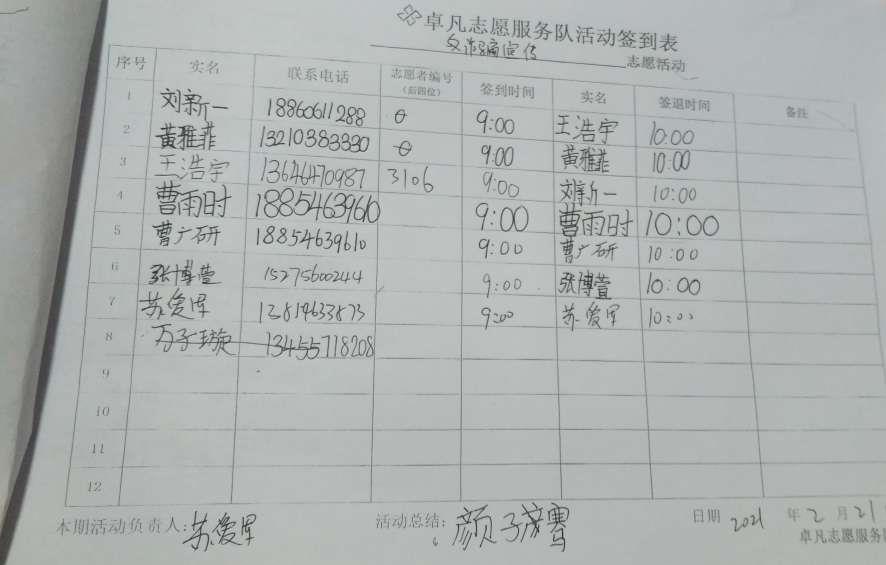 卓凡志愿服务队活动签到表
反诈骗宣传 志愿活动
序号 实名 联系电话 志愿者编号（后四位） 签到时间 实名 签退时间 备注
1 刘新一 18860611288 0 9:00 王浩宇 10:00
2 黄雅菲 13210383330 0 9:00 黄雅菲 10:00
3 王浩宇 13646470987 3106 9:00 刘新一 10:00
4 曹雨时 18854639610 9:00 曹雨时 10:00
5 曹广研 18854639610 9:00 曹广研 10:00
6 张博萱 15275600244 9:00 张博萱 10:00
7 苏爱军 9:00 苏爱军 10:00
8 万子璇 13455718208
9
10
11
12
本期活动负责人:苏爱军 活动总结: 颜子 日期 2021 年 2 月 21
卓凡志愿服务